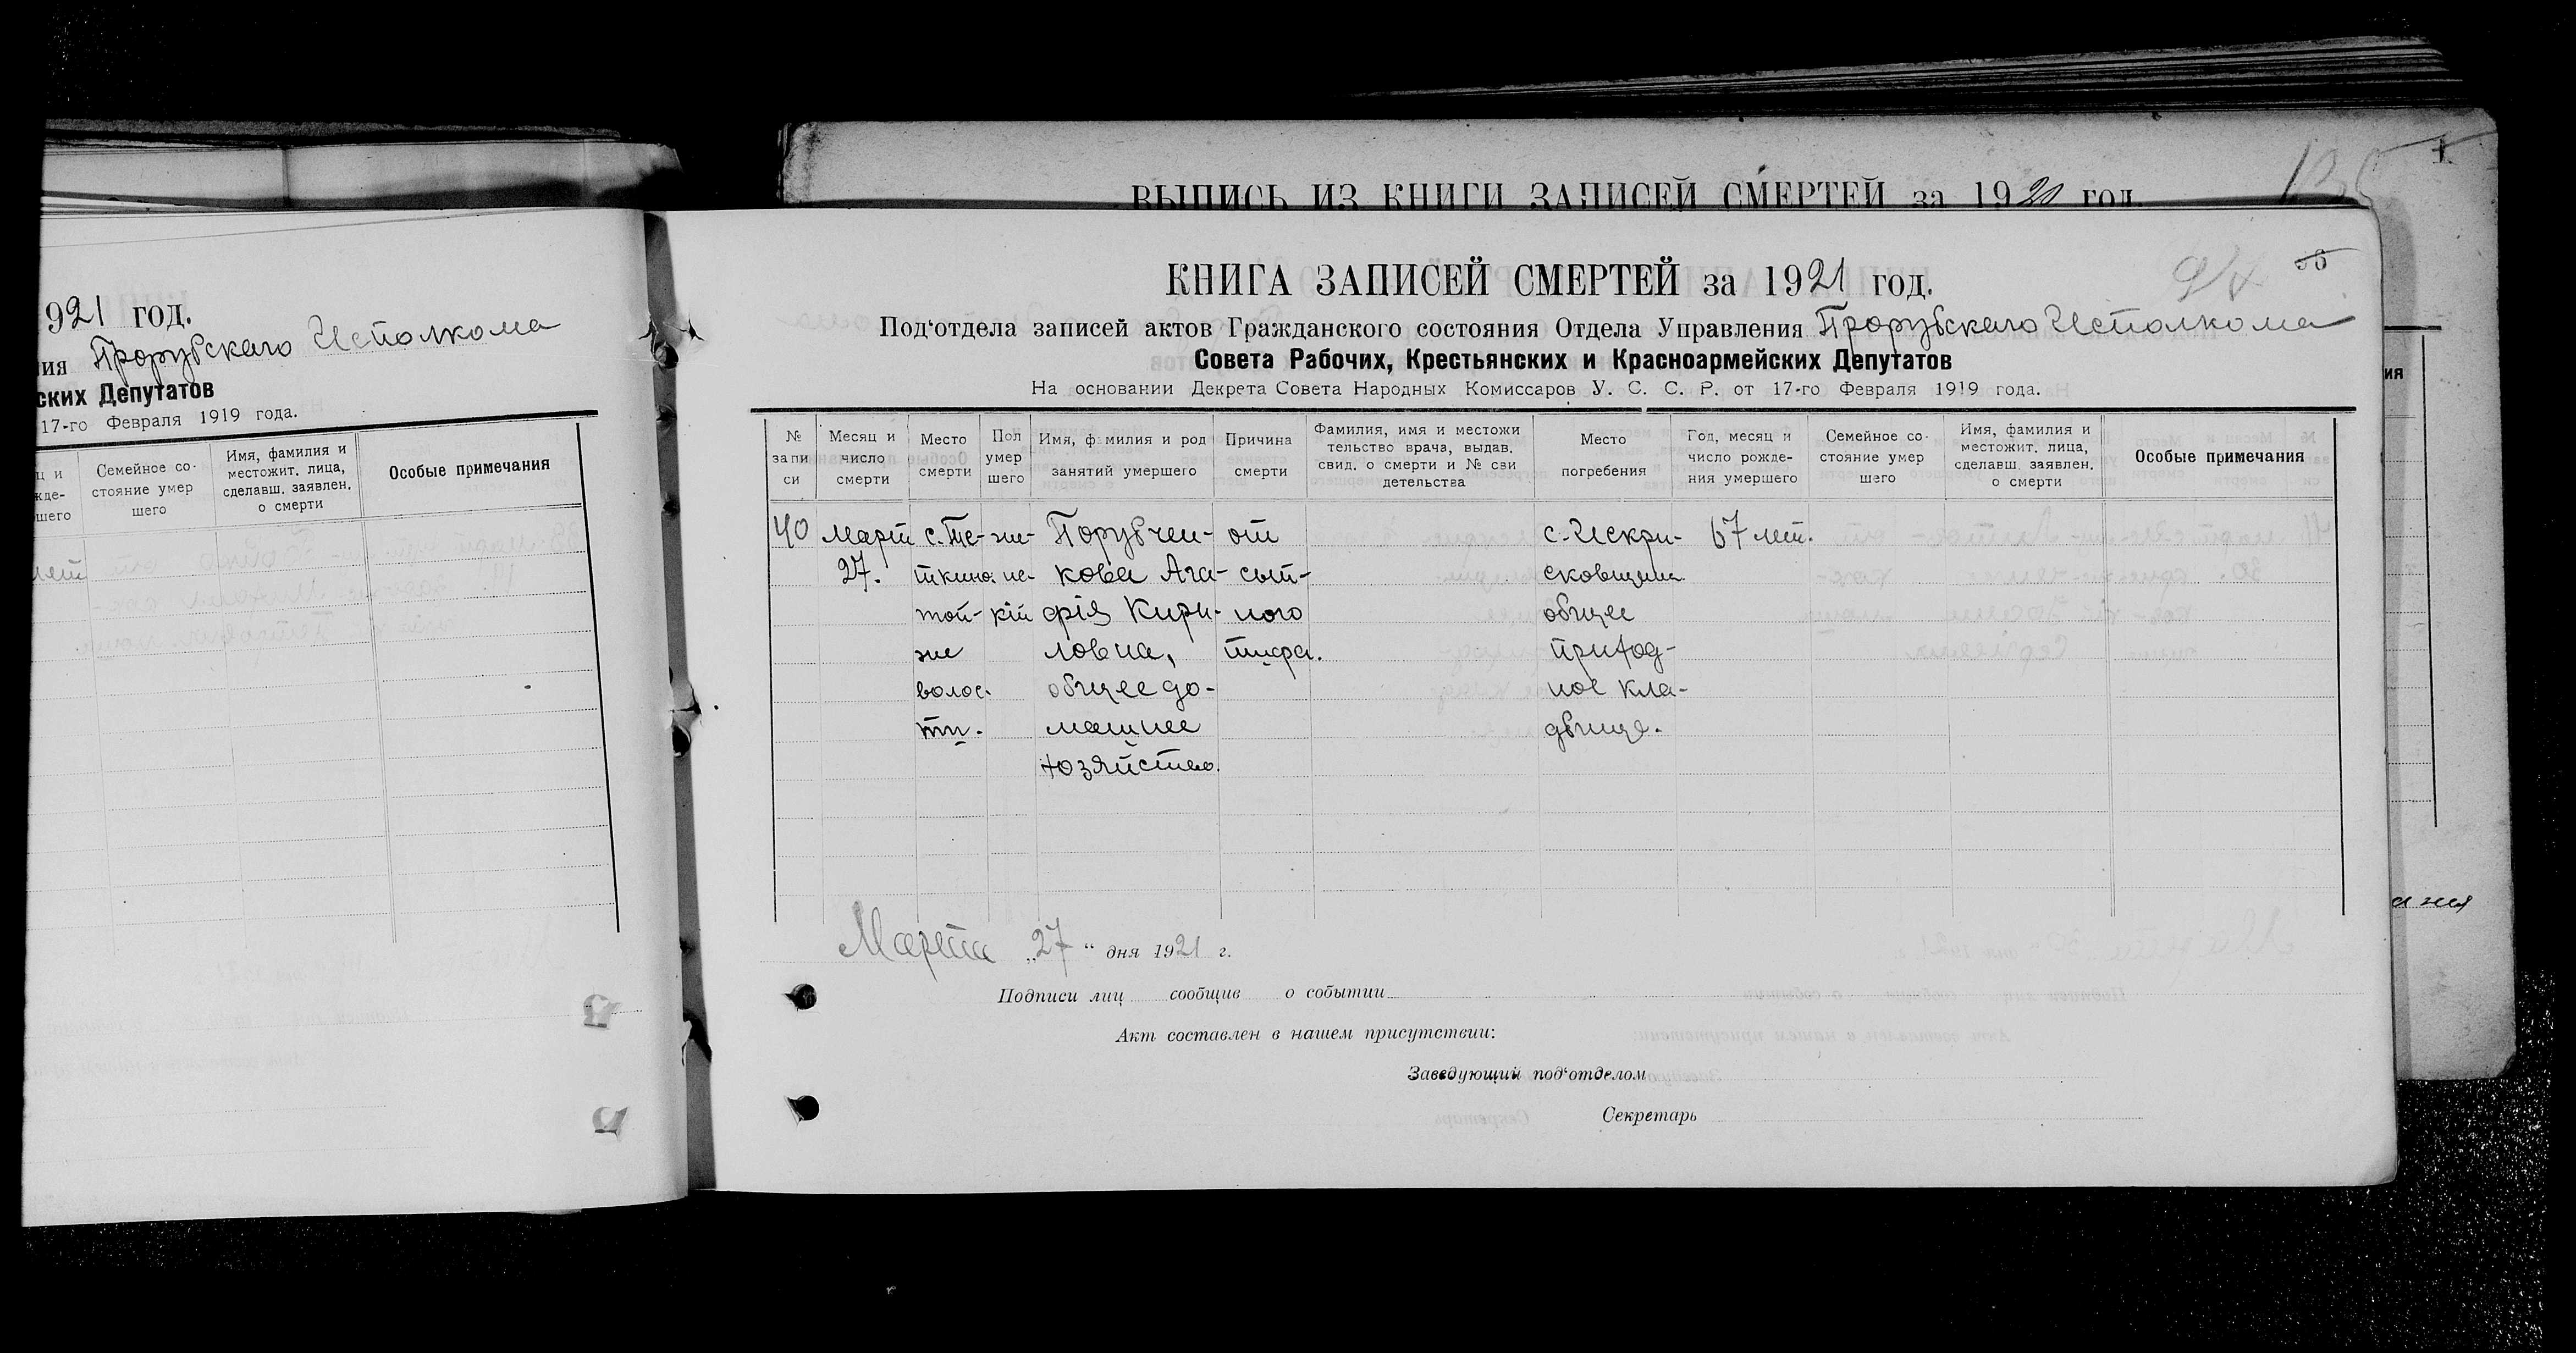 ВЫПИСЬ ИЗ КНИГИ ЗАПИСЕЙ СМЕРТЕЙ за 1920 год
921 год.
ия Прорубскаго Исполкома
ских Депутатов
17-го Февраля 1919 года.
ц и
жде-
шего
Семейное со-
стояние умер
шего
Имя, фамилия и
местожит. лица,
сделавш. заявлен.
о смерти
Особые примечания
лет
КНИГА ЗАПИСЕЙ СМЕРТЕЙ за 1921 год.
94
Под‘отдела записей актов Гражданского состояния Отдела Управления Прорубскаго Исполкома
Совета Рабочих, Крестьянских и Красноармейских Депутатов
На основании Декрета Совета Народных Комиссаров У. С. С. Р. от 17-го Февраля 1919 года.
№
запи
си
Месяц и
число
смерти
Место
смерти
Пол
умер
шего
Имя, ф милия и род
занятий умершего
Причина
смерти
Фамилия, имя и местожи
тельство врача, выдав.
свид. о смерти и № сви
детельства
Место
погребения
Год, месяц и
число рожде-
ния умершего
Семейное со-
стояние умер
шего
Имя, фамилия и
местожит. лица,
сделавш. заявлен.
о смерти
Особые примечания
40
Март
27.
с. Те-
ткино.
той-
же
волос.
ти.
же-
нс-
кій
Порубчен-
кова Ага-
фія Кири-
ловна,
общее до-
машнее
хозяйство.
от
сып-
ного
тифа.
с. Искри-
сковщина
общее
приход-
ное кла-
дбище.
67 лет.
Марта „27“ дня 1921 г.
Подписи лиц сообщив о событии
Акт составлен в нашем присутствии:
Заведующий под‘отделом
Секретарь
ия
ания